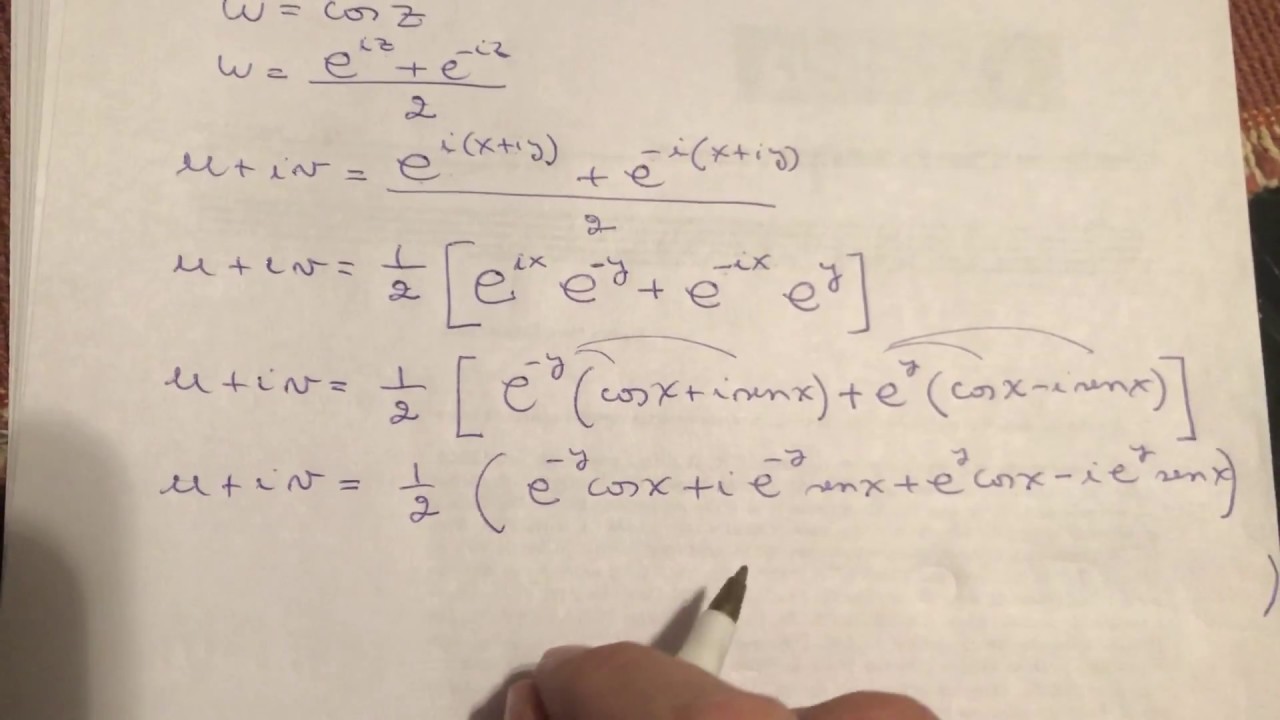 w = cos z
w = (e^{iz} + e^{-iz})/2
u + iv = (e^{i(x+iy)} + e^{-i(x+iy)})/2
u + iv = 1/2 [e^{ix} e^{-y} + e^{-ix} e^{y}]
u + iv = 1/2 [e^{-y} (cosx + i senx) + e^{y} (cosx - i senx)]
u + iv = 1/2 (e^{-y} cosx + i e^{-y} senx + e^{y} cosx - i e^{y} senx)
)